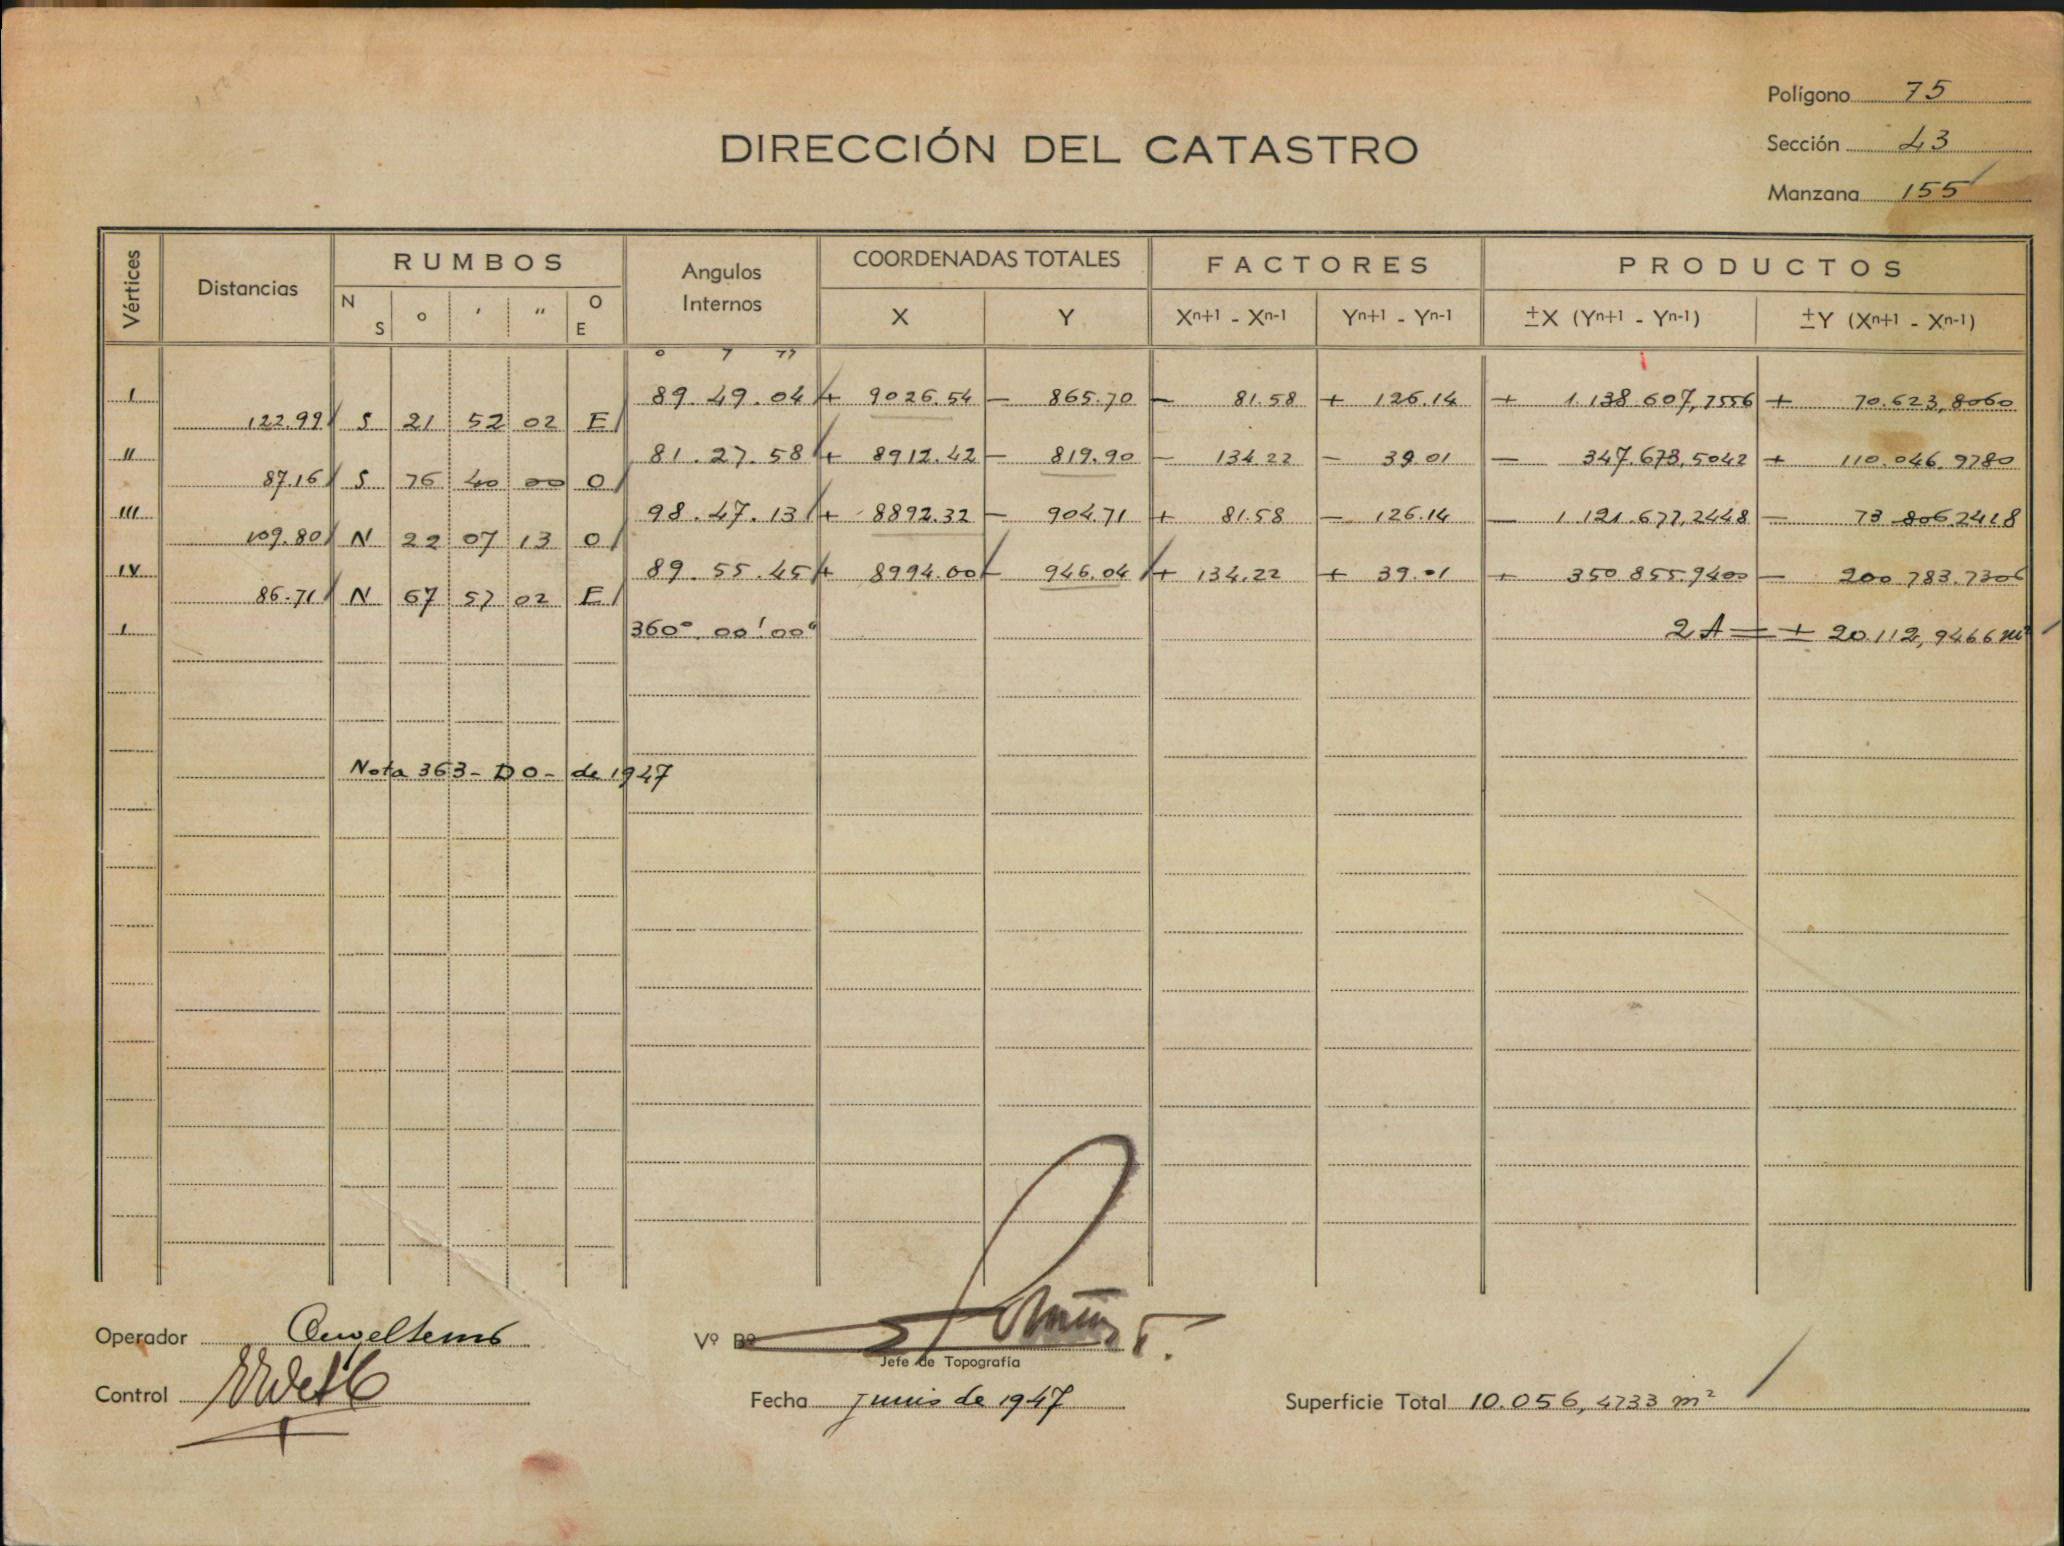 Polígono 75
DIRECCIÓN DEL CATASTRO
Sección 43
Manzana 155
Vértices Distancias RUMBOS Angulos Internos COORDENADAS TOTALES FACTORES PRODUCTOS
N S ° ' " O E X Y Xn+1 - Xn-1 Yn+1 - Yn-1 ±X (Yn+1 - Yn-1) ±Y (Xn+1 - Xn-1)
° ' "
I 89.49.04 + 9026.54 - 865.70 - 81.58 + 126.14 + 1.138.607,7556 + 70.623,8060
122.99 S 21 52 02 E
II 81.27.58 + 8912.42 - 819.90 - 134.22 - 39.01 - 347.673,5042 + 110.046.9780
87.16 S 76 40 00 O
III 98.47.13 + 8892.32 - 904.71 + 81.58 - 126.14 - 1.121.677,2448 - 73.806.2418
109.80 N 22 07 13 O
IV 89.55.45 + 8994.00 - 946.04 + 134.22 + 39.01 + 350.855.9400 - 200.783.7306
86.71 N 67 57 02 E
I 360° 00' 00" 2A = + 20.112,9466 m²
Nota 363 - DO - de 1947
Operador
Vº Bº
Jefe de Topografía
Control
Fecha junio de 1947
Superficie Total 10.056,4733 m²